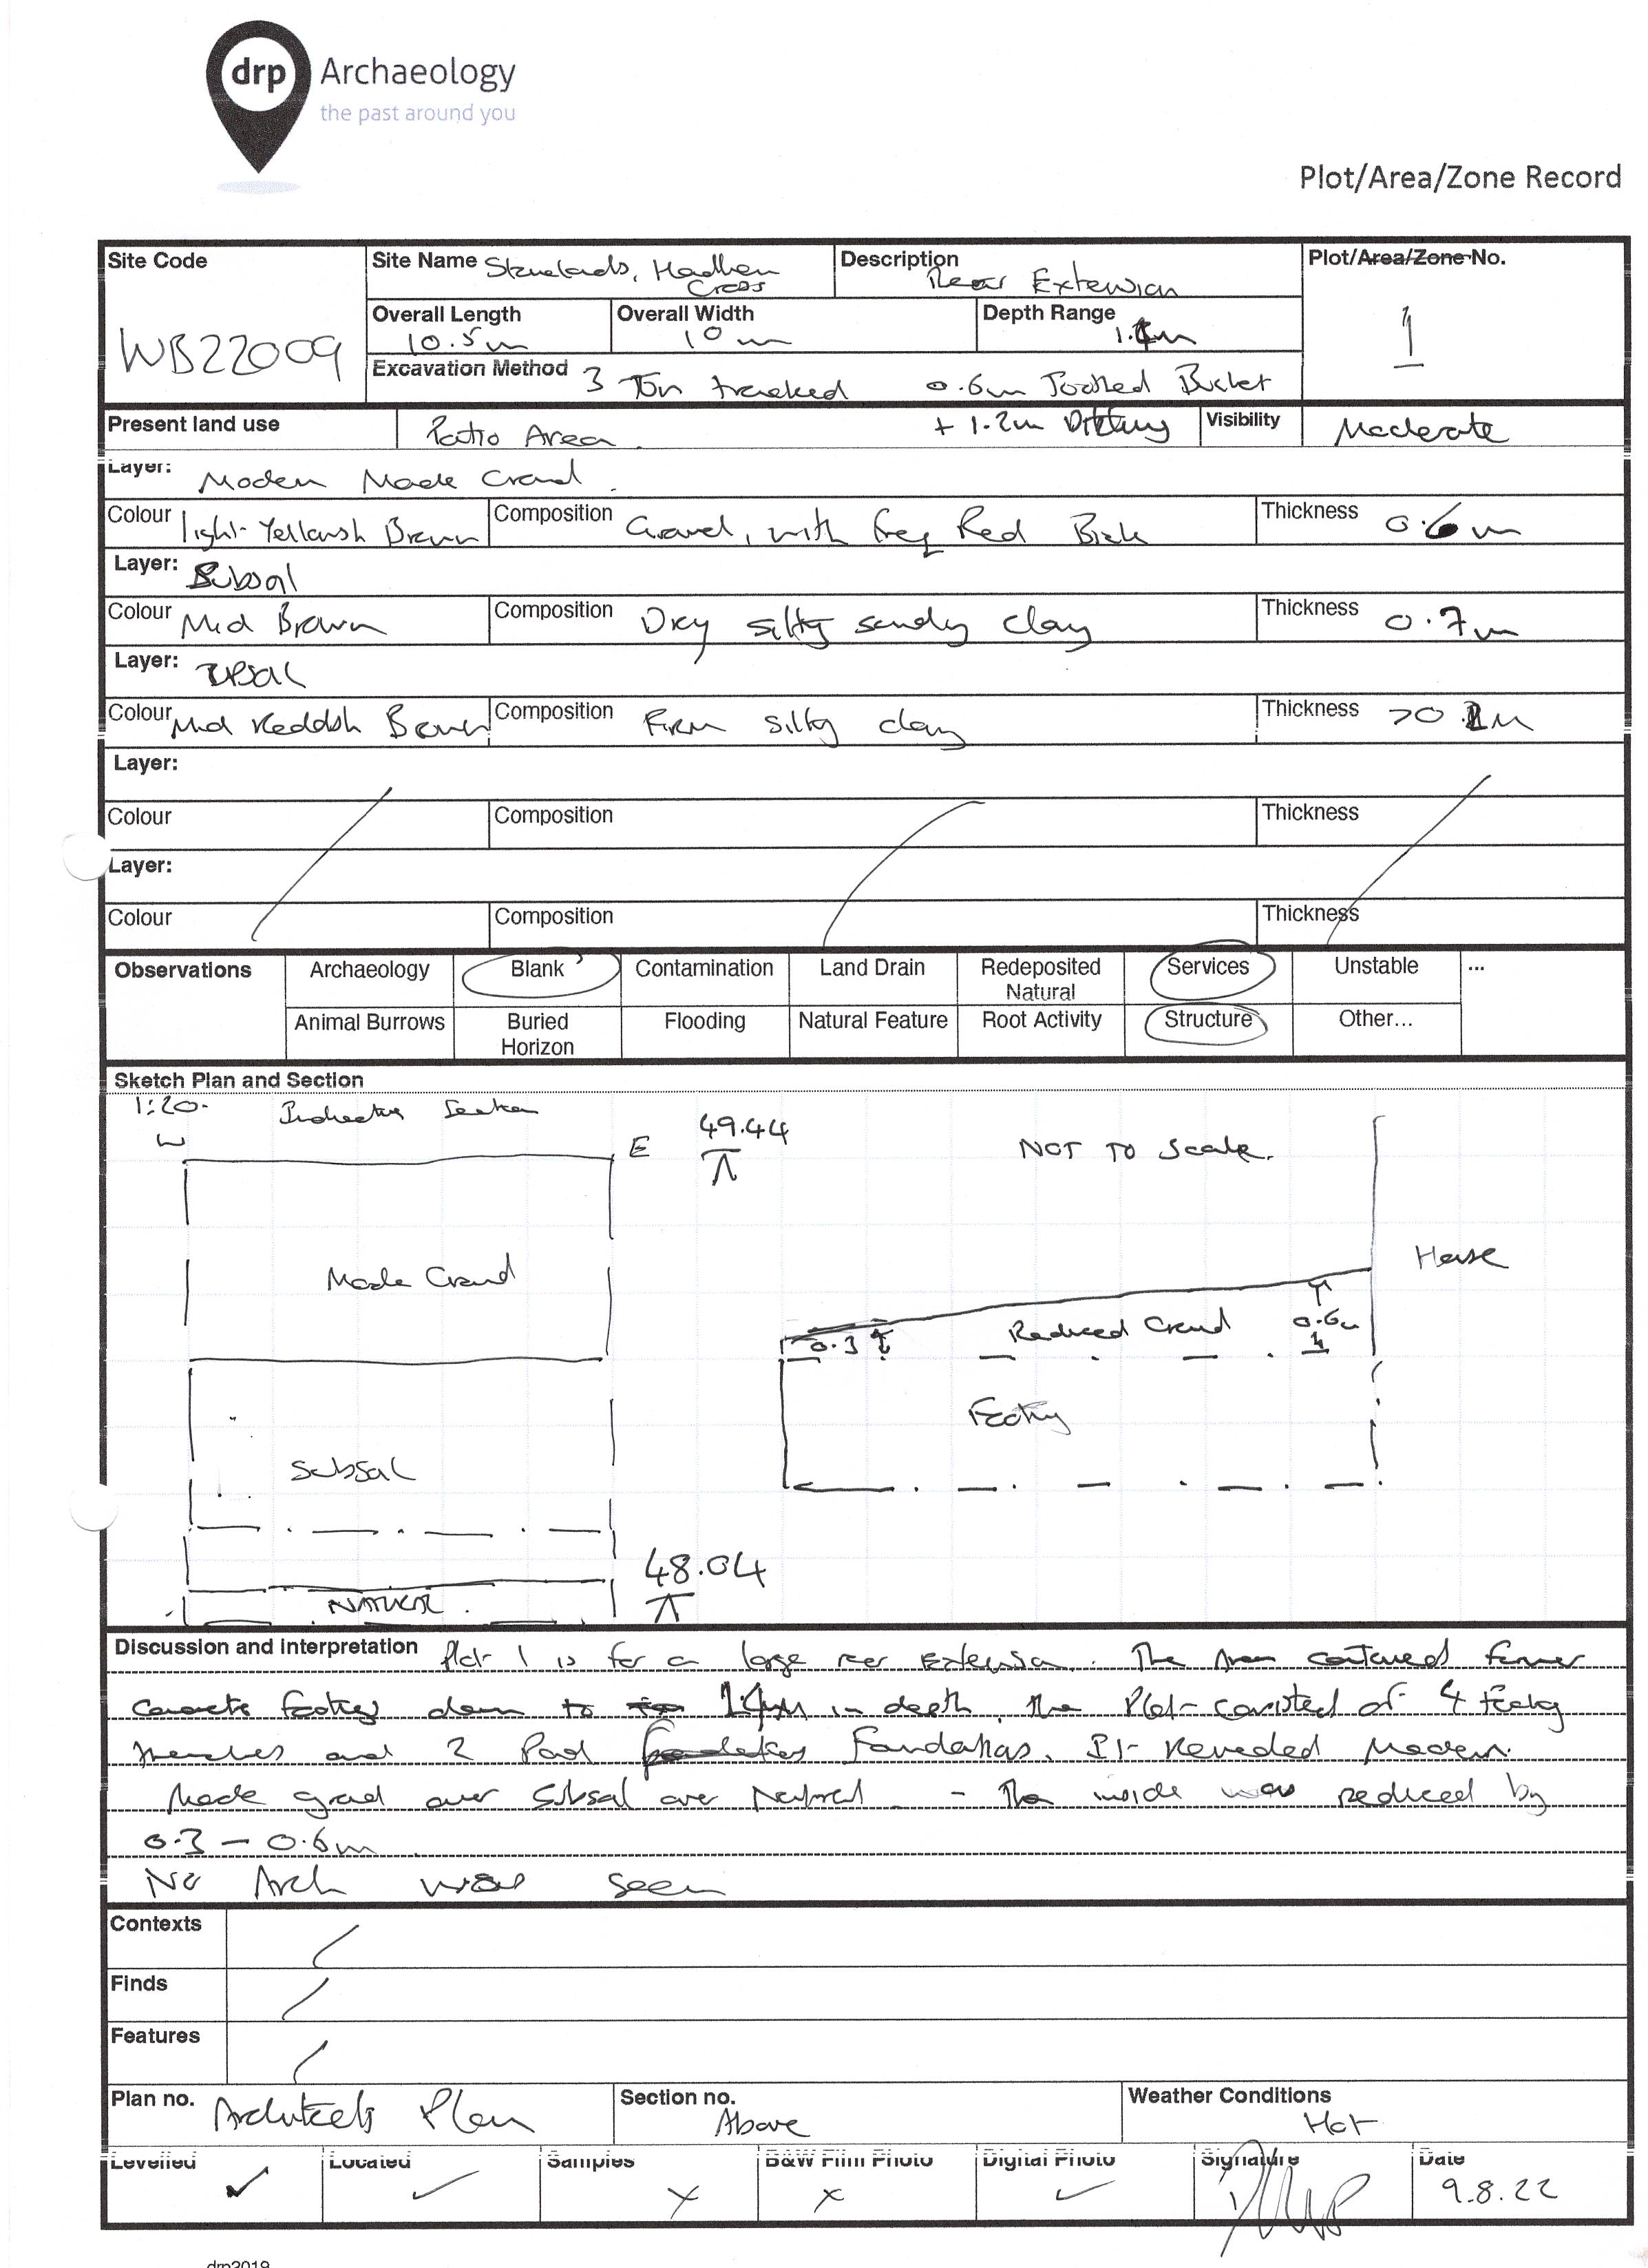 drp Archaeology
the past around you
Plot/Area/Zone Record
Site Code WB22009
Site Name Standards, Hadhen Cross
Description Rear Extension
Plot/Area/Zone No. 1
Overall Length 10.5m
Overall Width 10m
Depth Range 1.4m
Excavation Method 3 Ton tracked 0.6m Toothed Bucket
+ 1.2m Ditching
Present land use Patio Area
Visibility Moderate
Layer: Modern Made Ground
Colour light Yellowish Brown Composition Gravel, with freq Red Brick Thickness 0.6m
Layer: Subsoil
Colour Mid Brown Composition Dry silty sandy clay Thickness 0.7m
Layer:
Colour Mid Reddish Brown Composition Firm silty clay Thickness >0.1m
Layer:
Colour Composition Thickness
Layer:
Colour Composition Thickness
Observations Archaeology Blank Contamination Land Drain Redeposited Natural Services Unstable ...
Animal Burrows Buried Horizon Flooding Natural Feature Root Activity Structure Other...
Sketch Plan and Section
1:20. Indicative Section
W E 49.44 NOT TO Scale.
House
Made Ground
0.3 Reduced Ground 0.6m
Footing
Subsoil
48.04
NATURAL
Discussion and Interpretation Plot 1 is for a large rear Extension. The Area contained former
concrete footings down to 1.4m in depth. The Plot consisted of 4 footing
trenches and 2 Pad Foundations. It Revealed Modern
Made ground over Subsoil over Natural - The inside was reduced by
0.3 - 0.6m
No Arch was seen
Contexts /
Finds /
Features /
Plan no. Architects Plan Section no. Above Weather Conditions Hot
Levelled ✓ Located ✓ Samples X B&W Film Photo X Digital Photo ✓ Signature Date 9.8.22
drp2019